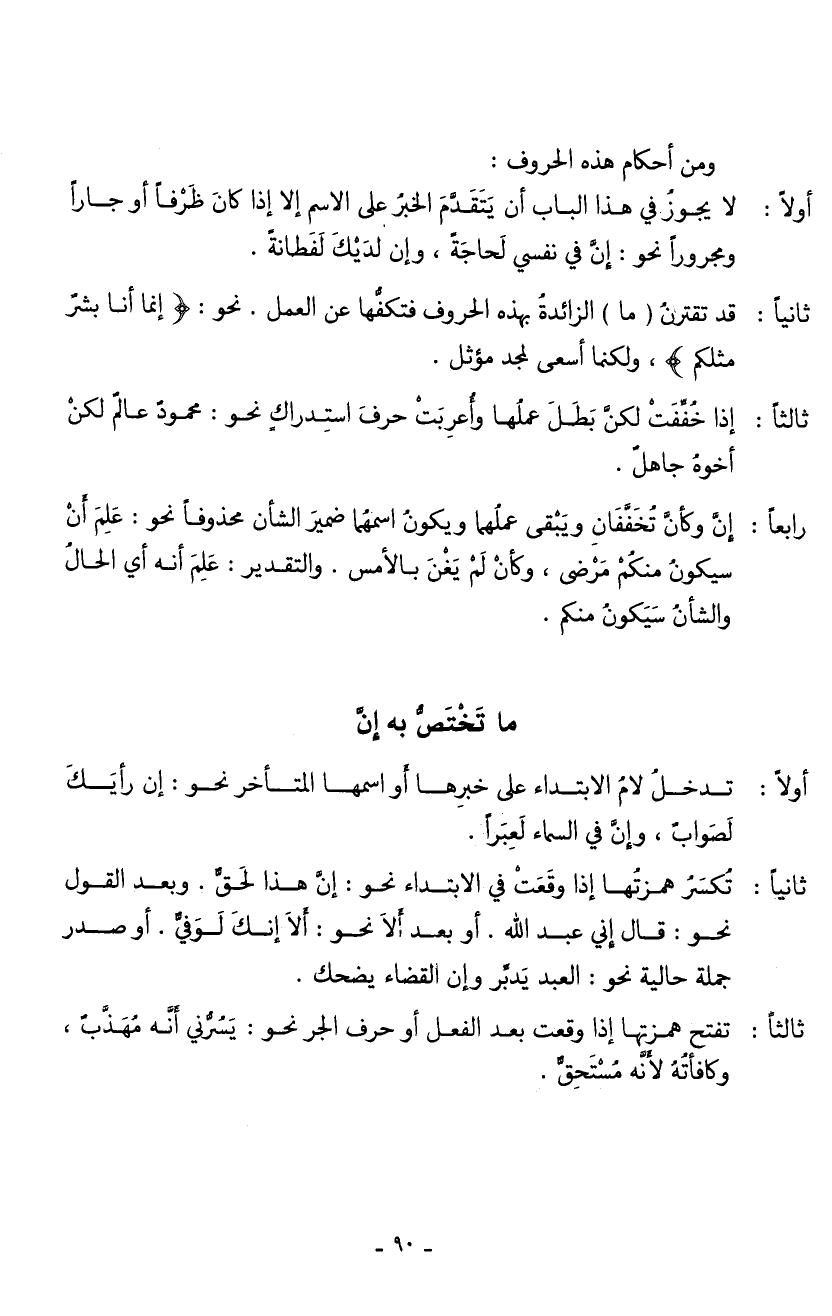 ومن أحكام هذه الحروف :
أولاً : لا يجوزُ في هذا الباب أن يَتَقَدَّمَ الخبرُ على الاسم إلا إذا كانَ ظَرْفاً أو جاراً
ومجروراً نحو : إنَّ في نفسي لَحاجَةً ، وإن لدَيْكَ لَفَطانةً .
ثانياً : قد تقترنُ ( ما ) الزائدةُ بهذه الحروف فتكفُّها عن العمل . نحو : ﴿ إنما أنا بشرٌ
مثلكم ﴾ ، ولكنما أسعى لمجد مؤثل .
ثالثاً : إذا خُفِّفَتْ لكنَّ بَطَلَ عملُها وأُعرِبَتْ حرفَ استدراكٍ نحو : محمودٌ عالمٌ لكنْ
أخوهُ جاهلٌ .
رابعاً : إنَّ وكأنَّ تُخَفَّفَانِ ويَبْقى عملُهما ويكونُ اسمهُما ضميرَ الشأن محذوفاً نحو : عَلِمَ أَنْ
سيكونُ منكُمْ مَرْضى ، وكأنْ لَمْ يَغْنَ بالأمس . والتقدير : عَلِمَ أنه أي الحالُ
والشأنُ سَيَكونُ منكم .
ما تَخْتَصُّ به إنَّ
أولاً : تدخلُ لامُ الابتداء على خبرِها أَو اسمها المتأخر نحو : إن رأيَكَ
لَصَوابٌ ، وإنَّ في السماء لَعِبَراً .
ثانياً : تُكسَرُ همزتُها إذا وقَعَتْ في الابتداء نحو : إنَّ هذا لحَقٌّ . وبعد القول
نحو : قال إني عبد الله . أو بعد أَلاَ نحو : أَلاَ إنكَ لَوَفيٌّ . أو صدر
جملة حالية نحو : العبد يَدبِّر وإن القضاء يضحك .
ثالثاً : تفتح همزتها إذا وقعت بعد الفعل أو حرف الجر نحو : يَسُرُّني أَنَّه مُهَذَّبٌ ،
وكافأتُهُ لأَنَّه مُسْتَحِقٌّ .
- ٩٠ -